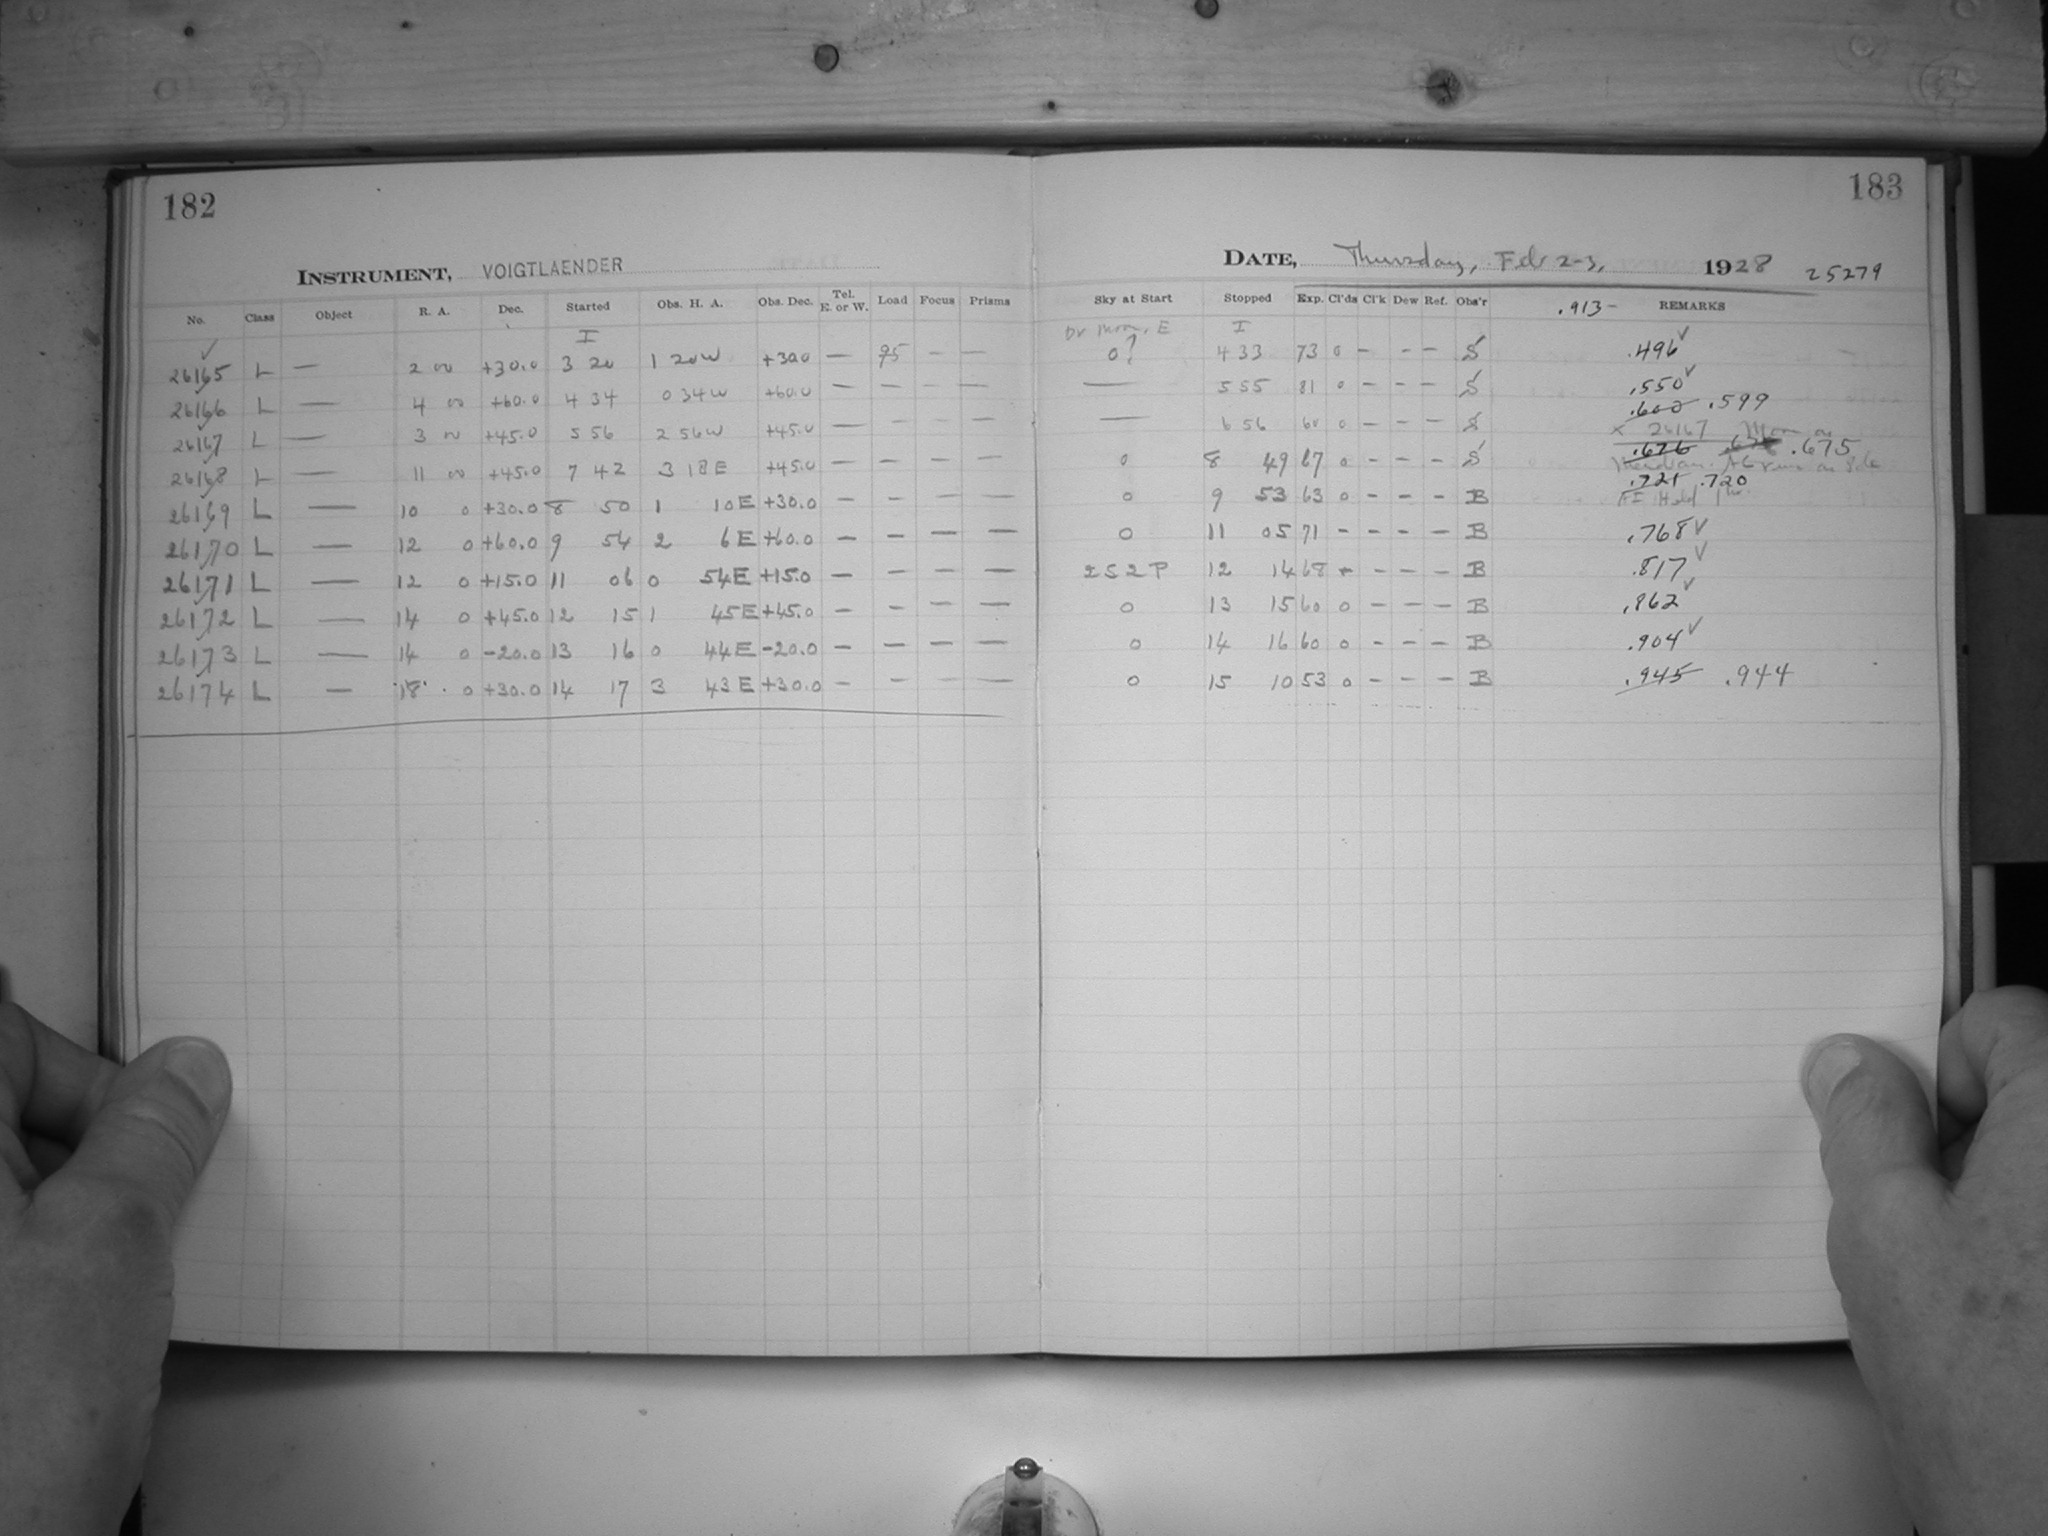 182
INSTRUMENT, VOIGTLAENDER
No. Class Object R. A. Dec. Started Obs. H. A. Obs. Dec. Tel. E. or W. Load Focus Prisms
I
26165 L — 2 00 +30.0 3 20 1 20W +30.0 — 95 — —
26166 L — 4 00 +60.0 4 34 0 34W +60.0 — — — —
26167 L — 3 00 +45.0 5 56 2 56W +45.0 — — — —
26168 L — 11 00 +45.0 7 42 3 18E +45.0 — — — —
26169 L — 10 0 +30.0 8 50 1 10E +30.0 — — — —
26170 L — 12 0 +60.0 9 54 2 6E +60.0 — — — —
26171 L — 12 0 +15.0 11 06 0 54E +15.0 — — — —
26172 L — 14 0 +45.0 12 15 1 45E +45.0 — — — —
26173 L — 14 0 -20.0 13 16 0 44E -20.0 — — — —
26174 L — 18 0 +30.0 14 17 3 43E +30.0 — — — —
183
DATE, Thursday, Feb 2-3, 1928 25279
Sky at Start Stopped Exp. Cl'ds Cl'k Dew Ref. Obs'r .913- REMARKS
Br Moon, E I
0? 4 33 73 0 - - - S .496 ✓
— 5 55 81 0 - - - S .550 ✓
.600 .599
— 6 56 60 0 - - - S x 26167 Moon on
.676 .675
0 8 49 67 0 - - - S Meridian.
.721 .720
0 9 53 63 0 - - - B
0 11 05 71 - - - - B .768 ✓
2S2P 12 14 68 - - - - B .817 ✓
0 13 15 60 0 - - - B .862 ✓
0 14 16 60 0 - - - B .904 ✓
0 15 10 53 0 - - - B .945 .944